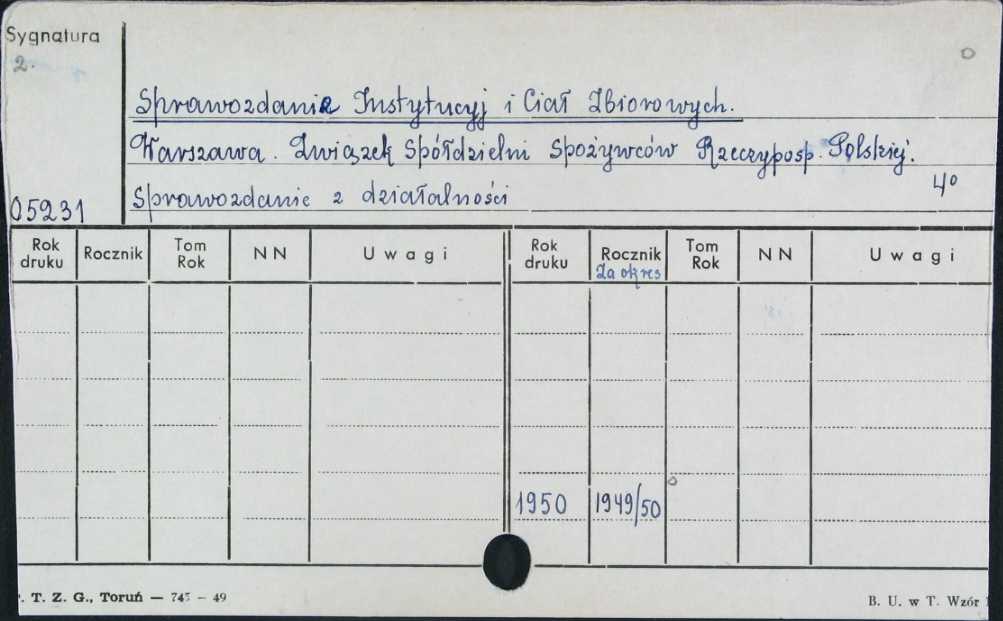 Sygnatura
2.
Sprawozdania Instytucyj i Ciał Zbiorowych.
Warszawa. Związek Spółdzielni Spożywców Rzeczyposp. Polskiej.
4°
05231 Sprawozdanie z działalności
Rok druku Rocznik Tom Rok NN Uwagi Rok druku Rocznik Za okres Tom Rok NN Uwagi
1950 1949/50
. T. Z. G., Toruń — 745 - 49 B. U. w T. Wzór